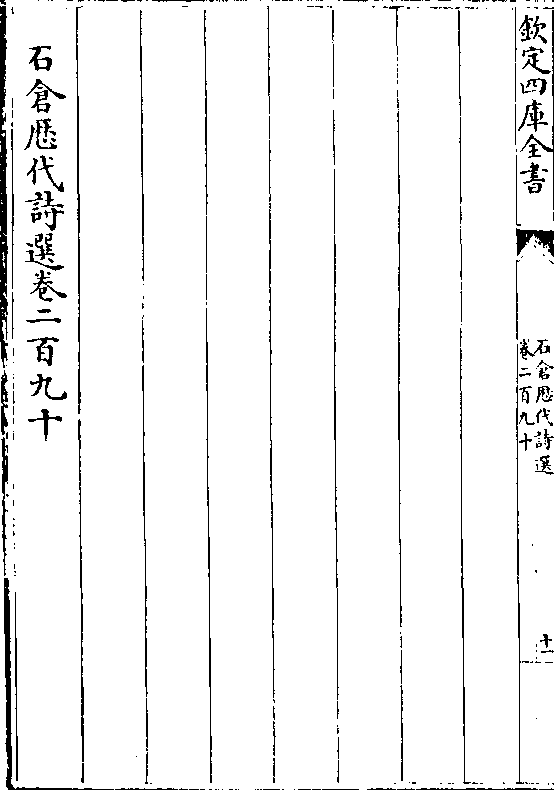 欽定四庫全書
石倉歷代詩選
卷二百九十
十一
石倉歷代詩選卷二百九十